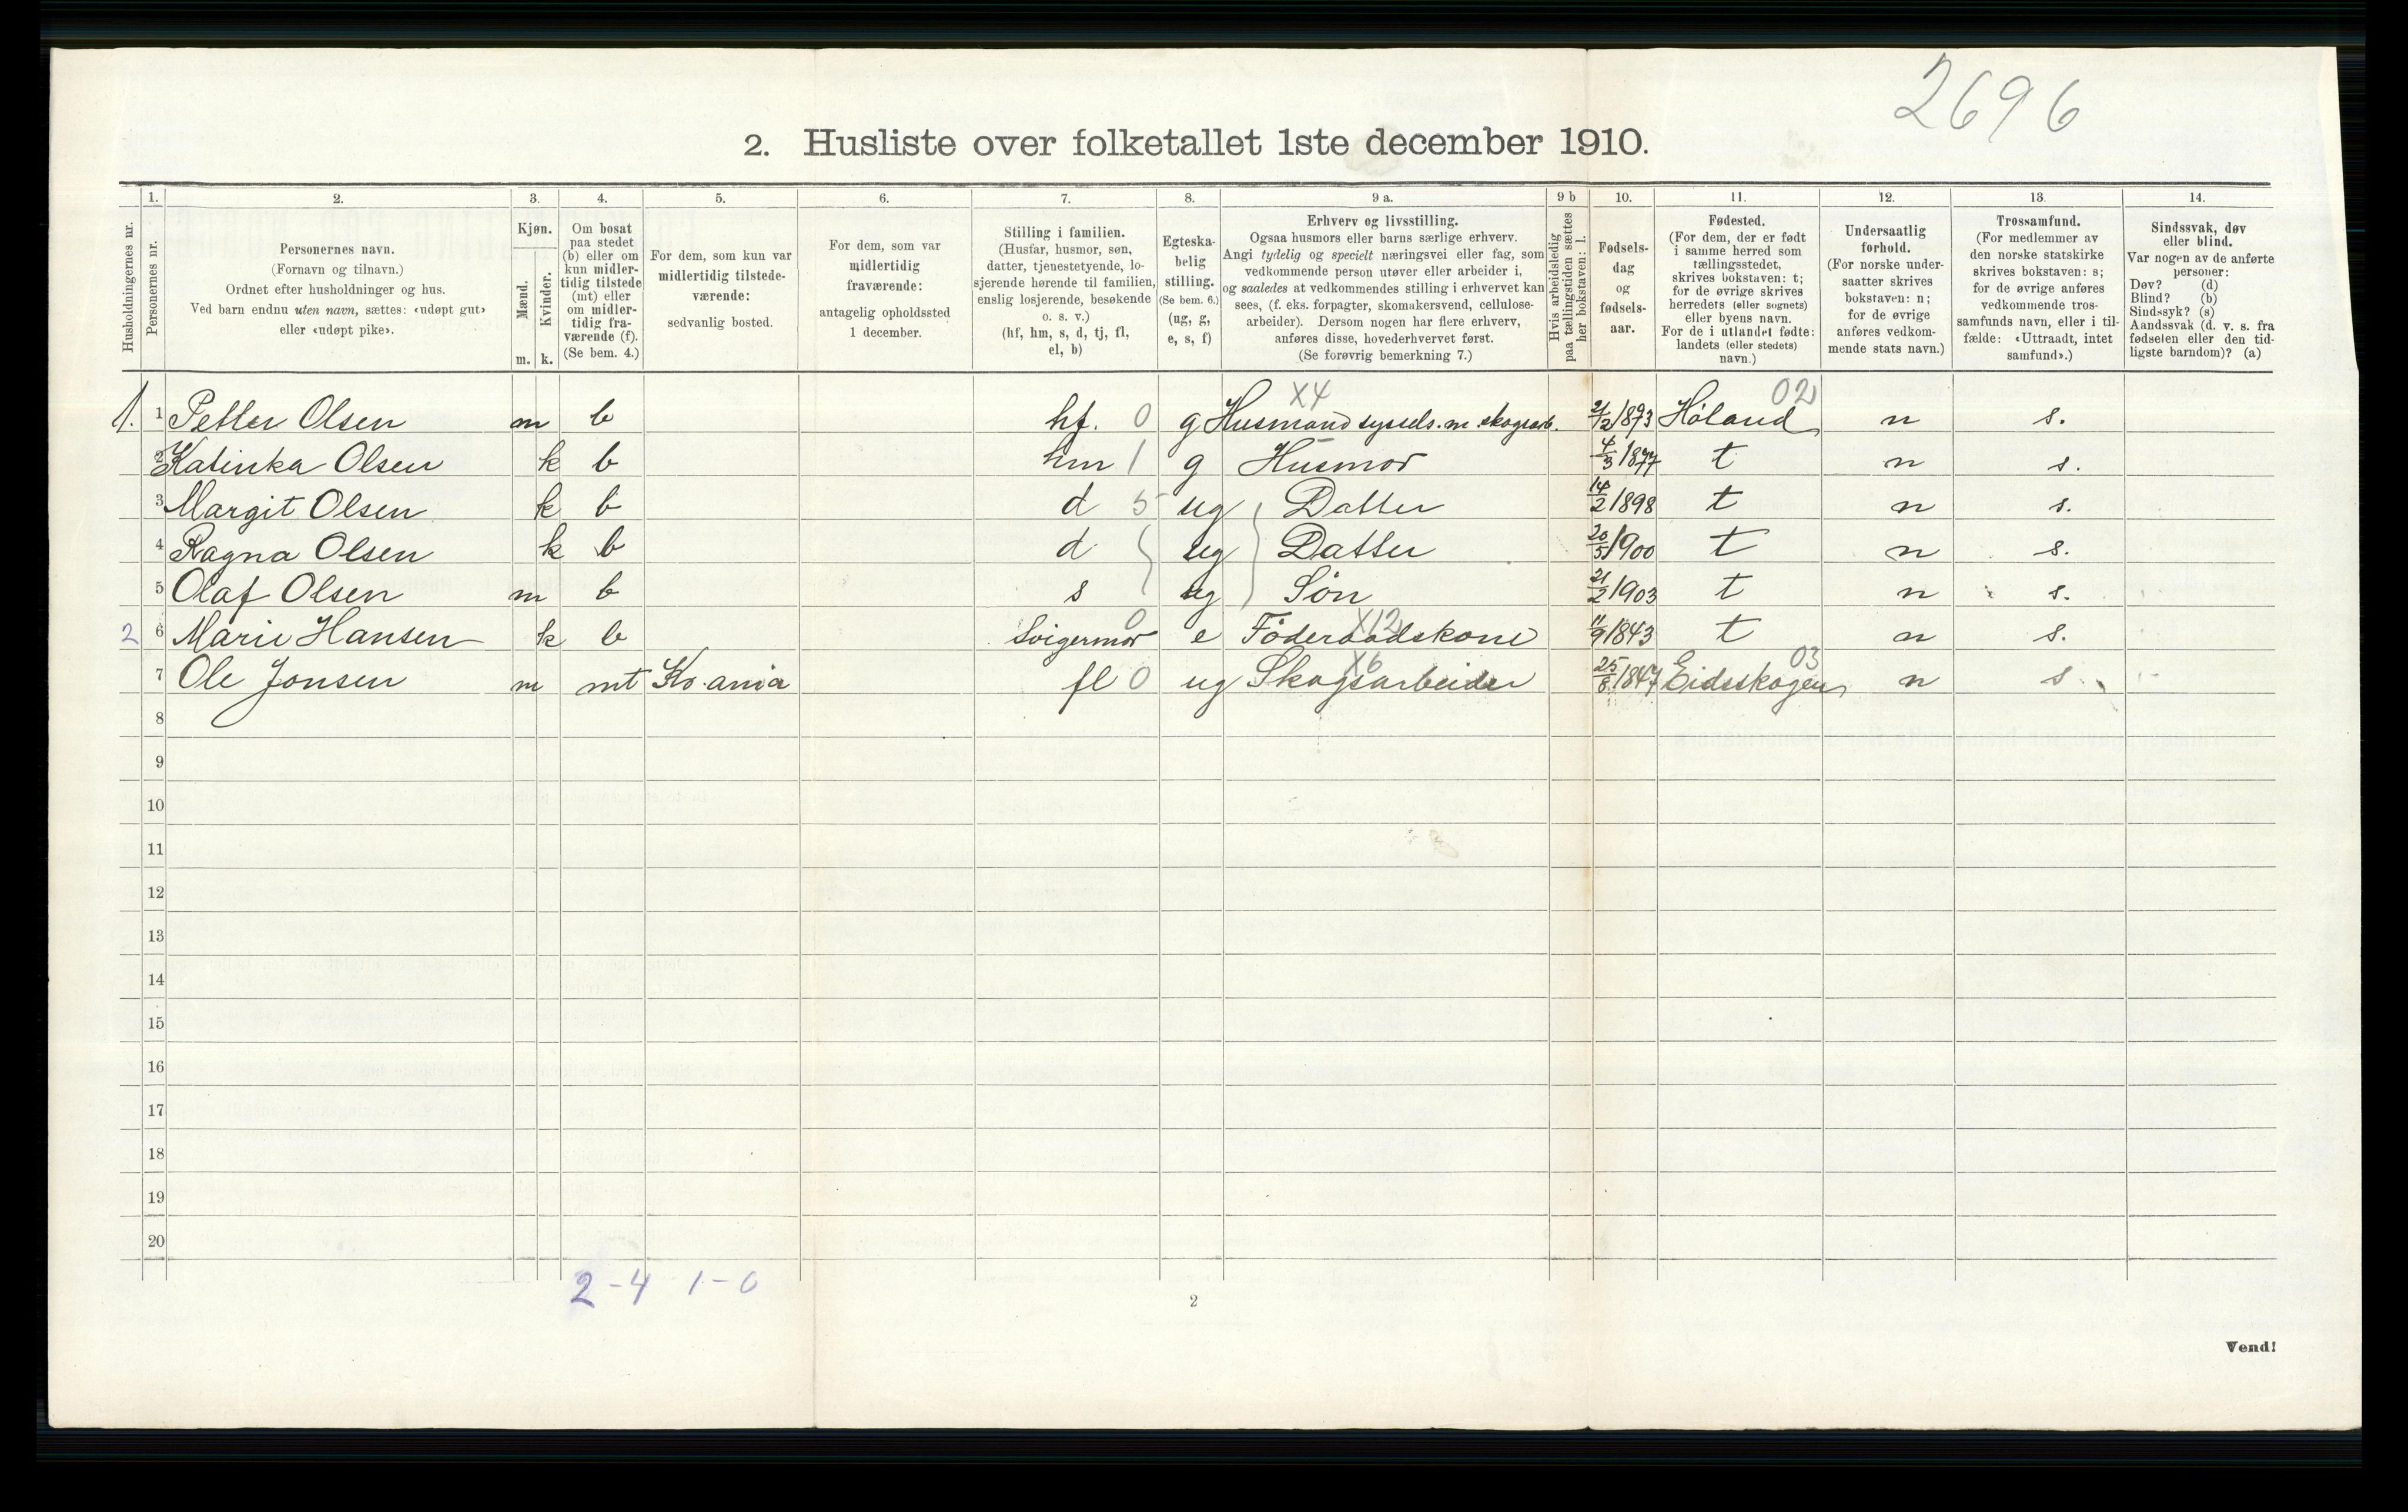 2696
2. Husliste over folketallet 1ste december 1910.
Husholdningernes nr.
1.
Personernes nr.
2.
Personernes navn.
(Fornavn og tilnavn.)
Ordnet efter husholdninger og hus.
Ved barn endnu uten navn, sættes: «udøpt gut»
eller «udøpt pike».
3.
Kjøn.
Mænd.
Kvinder.
m. k.
4.
Om bosat
paa stedet
(b) eller om
kun midler-
tidig tilstede
(mt) eller
om midler-
tidig fra-
værende (f).
(Se bem. 4.)
5.
For dem, som kun var
midlertidig tilstede-
værende:
sedvanlig bosted.
6.
For dem, som var
midlertidig
fraværende:
antagelig opholdssted
1 december.
7.
Stilling i familien.
(Husfar, husmor, søn,
datter, tjenestetyende, lo-
sjerende hørende til familien,
enslig losjerende, besøkende
o. s. v.)
(hf, hm, s, d, tj, fl,
el, b)
8.
Egteska-
belig
stilling.
(Se bem. 6.)
(ug, g,
e, s, f)
9 a.
Erhverv og livsstilling.
Ogsaa husmors eller barns særlige erhverv.
Angi tydelig og specielt næringsvei eller fag, som
vedkommende person utøver eller arbeider i,
og saaledes at vedkommendes stilling i erhvervet kan
sees, (f. eks. forpagter, skomakersvend, cellulose-
arbeider). Dersom nogen har flere erhverv,
anføres disse, hovederhvervet først.
(Se forøvrig bemerkning 7.)
9 b
Hvis arbeidsledig
paa tællingstiden sættes
her bokstaven: l.
10.
Fødsels-
dag
og
fødsels-
aar.
11.
Fødested.
(For dem, der er født
i samme herred som
tællingsstedet,
skrives bokstaven: t;
for de øvrige skrives
herredets (eller sognets)
eller byens navn.
For de i utlandet fødte:
landets (eller stedets)
navn.)
12.
Undersaatlig
forhold.
(For norske under-
saatter skrives
bokstaven: n;
for de øvrige
anføres vedkom-
mende stats navn.)
13.
Trossamfund.
(For medlemmer av
den norske statskirke
skrives bokstaven: s;
for de øvrige anføres
vedkommende tros-
samfunds navn, eller i til-
fælde: «Uttraadt, intet
samfund».)
14.
Sindssvak, døv
eller blind.
Var nogen av de anførte
personer:
Døv? (d)
Blind? (b)
Sindssyk? (s)
Aandssvak (d. v. s. fra
fødselen eller den tid-
ligste barndom)? (a)
X4 02
1. 1 Petter Olsen m b hf. 0 g Husmand syssels. m. skogsarb. 21/2 1873 Høland n s.
2 Katinka Olsen k b hm 1 g Husmor 4/3 1877 t n s.
3 Margit Olsen k b d 5 ug Datter 14/2 1898 t n s.
4 Ragna Olsen k b d ug Datter 20/5 1900 t n s.
5 Olaf Olsen m b s ug Søn 21/2 1903 t n s.
0 X12
2 6 Marie Hansen k b Svigermor e Föderaadskone 11/9 1843 t n s.
X6 03
7 Ole Jonsen m mt Kr.ania fl 0 ug Skogsarbeider 25/8 1847 Eidsskogen n s
8
9
10
11
12
13
14
15
16
17
18
19
20
2-4 1-0
2
Vend!